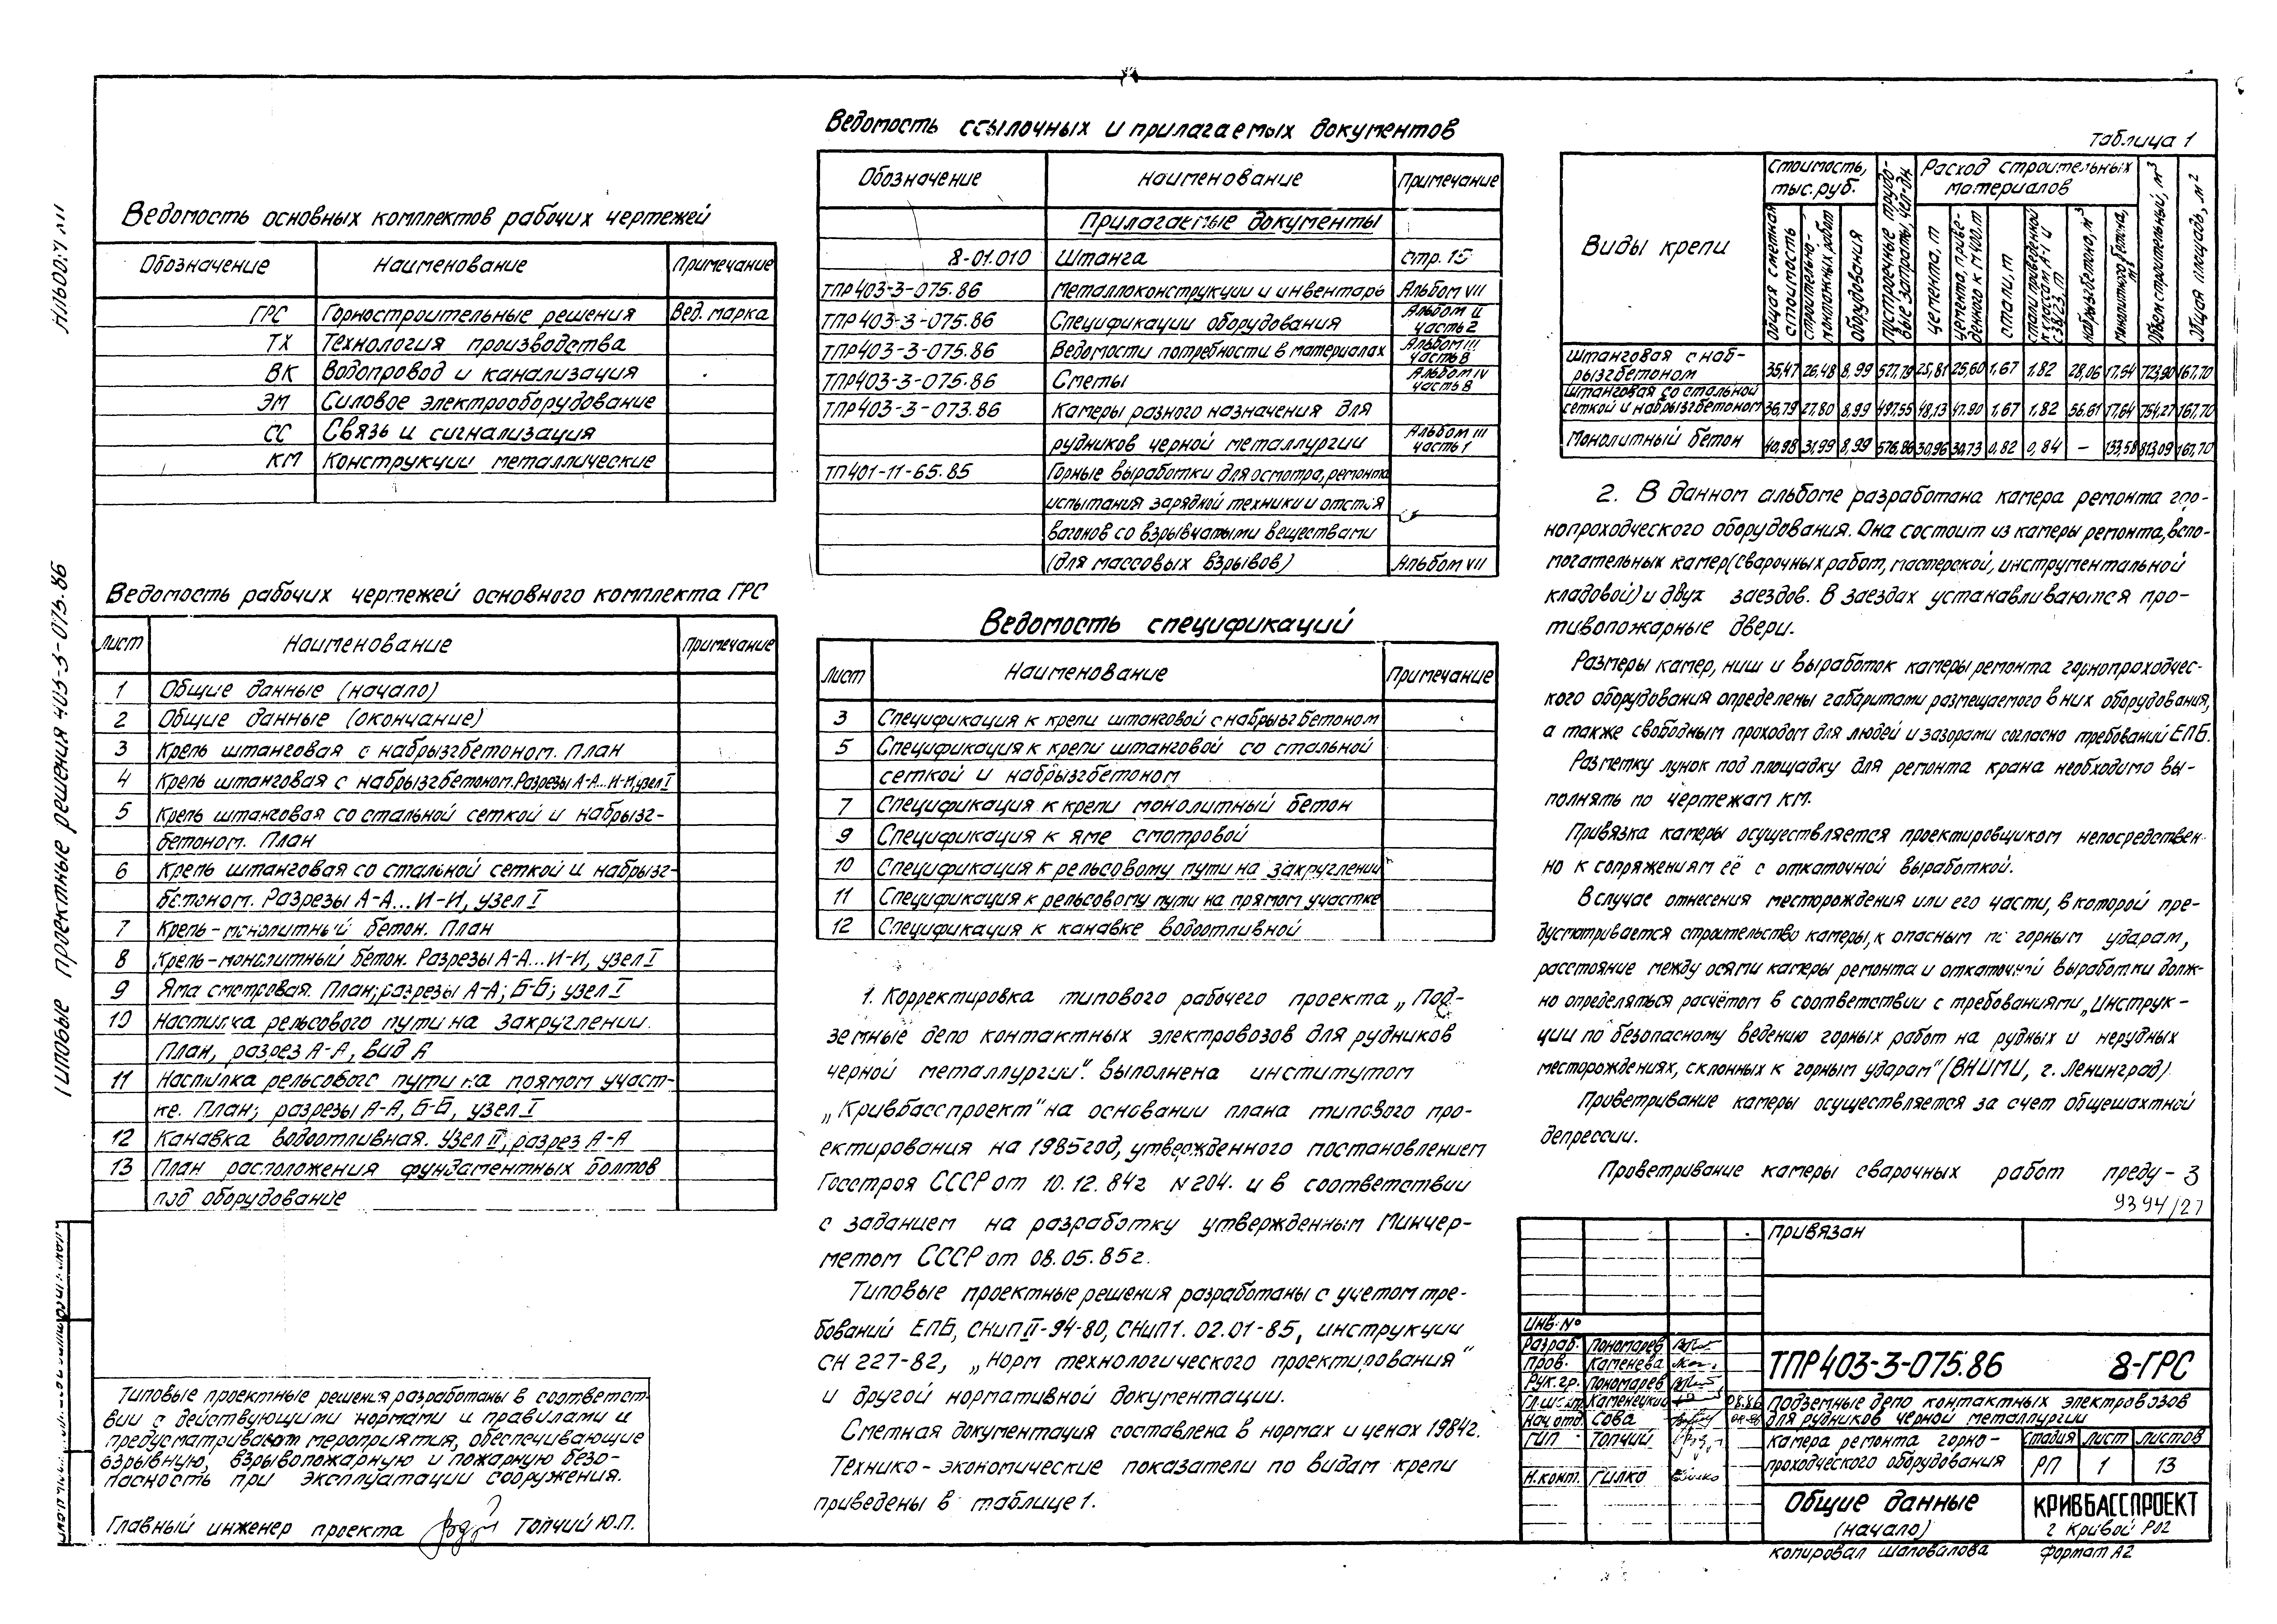 Типовые проектные решения 403-3-075.86
Ведомость основных комплектов рабочих чертежей
Обозначение Наименование Примечание
ГРС Горностроительные решения Вед. марка
ТХ Технология производства
ВК Водопровод и канализация
ЭМ Силовое электрооборудование
СС Связь и сигнализация
КМ Конструкции металлические
Ведомость рабочих чертежей основного комплекта ГРС
Лист Наименование Примечание
1 Общие данные (начало)
2 Общие данные (окончание)
3 Крепь штанговая с набрызгбетоном. План
4 Крепь штанговая с набрызгбетоном. Разрезы А-А...И-И, узел I
5 Крепь штанговая со стальной сеткой и набрызг-
бетоном. План
6 Крепь штанговая со стальной сеткой и набрызг-
бетоном. Разрезы А-А...И-И, узел I
7 Крепь-монолитный бетон. План
8 Крепь-монолитный бетон. Разрезы А-А...И-И, узел I
9 Яма смотровая. План; разрезы А-А; Б-Б; узел I
10 Настилка рельсового пути на закруглении.
План, разрез А-А, вид А
11 Настилка рельсового пути на прямом участ-
ке. План; разрезы А-А, Б-Б, узел I
12 Канавка водоотливная. Узел II; разрез А-А
13 План расположения фундаментных болтов
под оборудование
Типовые проектные решения разработаны в соответст-
вии с действующими нормами и правилами и
предусматривают мероприятия, обеспечивающие
взрывную, взрывопожарную и пожарную безо-
пасность при эксплуатации сооружения.
Главный инженер проекта Топчий Ю.П.
Ведомость ссылочных и прилагаемых документов
Обозначение Наименование Примечание
Прилагаемые документы
8-01.010 Штанга стр. 15
ТПР403-3-075.86 Металлоконструкции и инвентарь Альбом VII
ТПР403-3-075.86 Спецификации оборудования Альбом II часть 2
ТПР403-3-075.86 Ведомости потребности в материалах Альбом III часть 8
ТПР403-3-075.86 Сметы Альбом IV часть 8
ТПР403-3-073.86 Камеры разного назначения для
рудников черной металлургии Альбом III часть 1
ТП401-11-65.85 Горные выработки для осмотра, ремонта
испытания зарядной техники и отстоя
вагонов со взрывчатыми веществами
(для массовых взрывов) Альбом VII
Ведомость спецификаций
Лист Наименование Примечание
3 Спецификация к крепи штанговой с набрызгбетоном
5 Спецификация к крепи штанговой со стальной
сеткой и набрызгбетоном
7 Спецификация к крепи монолитный бетон
9 Спецификация к яме смотровой
10 Спецификация к рельсовому пути на закруглении
11 Спецификация к рельсовому пути на прямом участке
12 Спецификация к канавке водоотливной
1. Корректировка типового рабочего проекта „Под-
земные депо контактных электровозов для рудников
черной металлургии". Выполнена институтом
„Кривбасспроект" на основании плана типового про-
ектирования на 1985год, утвержденного постановлением
Госстроя СССР от 10.12.84г N204. и в соответствии
с заданием на разработку утвержденным Минчер-
метом СССР от 08.05.85г.
Типовые проектные решения разработаны с учетом тре-
бований ЕПБ, СНиП II-94-80, СНиП 1.02.01-85, инструкции
СН 227-82, „Норм технологического проектирования"
и другой нормативной документации.
Сметная документация составлена в нормах и ценах 1984г.
Технико-экономические показатели по видам крепи
приведены в таблице 1.
Таблица 1
Виды крепи
Стоимость, тыс. руб.
Общая сметная стоимость
строительно-монтажных работ
оборудования
Построечные трудо-вые затраты, чел-дн.
Расход строительных материалов
цемента, т
цемента, приве-денного к М400, т
стали, т
стали приведенной к классам А-I и С38/23, т
набрызгбетона, м³
монолитного бетона, м³
Объем строительный, м³
Общая площадь, м²
Штанговая с наб-
рызгбетоном 35,47 26,48 8,99 527,79 25,81 25,60 1,67 1,82 28,06 17,64 723,90 167,70
Штанговая со стальной
сеткой и набрызгбетоном 36,79 27,80 8,99 497,55 48,13 47,90 1,67 1,82 56,61 17,64 754,27 167,70
Монолитный бетон 40,98 31,99 8,99 576,86 30,96 30,73 0,82 0,84 — 133,58 813,09 167,70
2. В данном альбоме разработана камера ремонта гор-
нопроходческого оборудования. Она состоит из камеры ремонта, вспо-
могательных камер (сварочных работ, мастерской, инструментальной
кладовой) и двух заездов. В заездах устанавливаются про-
тивопожарные двери.
Размеры камер, ниш и выработок камеры ремонта горнопроходчес-
кого оборудования определены габаритами размещаемого в них оборудования,
а также свободным проходом для людей и зазорами согласно требований ЕПБ.
Разметку лунок под площадку для ремонта крана необходимо вы-
полнять по чертежам КМ.
Привязка камеры осуществляется проектировщиком непосредствен-
но к сопряжениям её с откаточной выработкой.
В случае отнесения месторождения или его части, в которой пре-
дусматривается строительство камеры, к опасным по горным ударам,
расстояние между осями камеры ремонта и откаточной выработки долж-
но определяться расчётом в соответствии с требованиями „Инструк-
ции по безопасному ведению горных работ на рудных и нерудных
месторождениях, склонных к горным ударам" (ВНИМИ, г. Ленинград)
Проветривание камеры осуществляется за счет общешахтной
депрессии.
Проветривание камеры сварочных работ преду- 3
9394/27
Привязан
Инв. №
Разраб. Пономарев
Пров. Каменева
Рук. гр. Пономарев
Каменецкий 08.86
Нач. отд. Сова
ГИП Топчий
Н.конт. Гилко
ТПР403-3-075.86 8-ГРС
Подземные депо контактных электровозов
для рудников черной металлургии
Камера ремонта горно-
проходческого оборудования
Стадия Лист Листов
РП 1 13
Общие данные
(начало)
КРИВБАССПРОЕКТ
г Кривой Рог
Копировал Шаповалова Формат А2